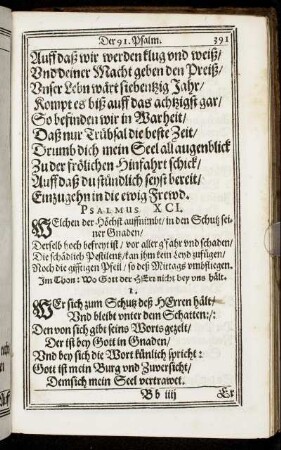 Der 91. Psalm. 391
Auff daß wir werden klug vnd weiß/
Vnd deiner Macht geben den Preiß/
Vnser Lebn wärt siebentzig Jahr/
Kompt es biß auff das achtzigst gar/
So befinden wir in Warheit/
Daß nur Trübsal die beste Zeit/
Drumb dich mein Seel all augenblick
Zu der frölichen Hinfahrt schick/
Auff daß du stündlich seyst bereit/
Einzugehn in die ewig Frewd.
PSALMUS XCI.
WElchen der Höchst auffnimbt/ in den Schutz sei-
ner Gnaden/
Derselb hoch befreyt ist/ vor aller g'fahr vnd schaden/
Die schädlich Pestilentz/ kan ihm kein Leyd zufügen/
Noch die gifftigen Pfeil/ so deß Mittags vmbfliegen.
Im Thon: Wo Gott der HErr nicht bey vns hält.
1.
WEr sich zum Schutz deß HErren hält/
Vnd bleibt vnter dem Schatten:/:
Den von sich gibt seins Worts gezelt/
Der ist bey Gott in Gnaden/
Vnd bey sich die Wort künlich spricht:
Gott ist mein Burg vnd Zuversicht/
Dem sich mein Seel vertrawet.
B b iiij Er